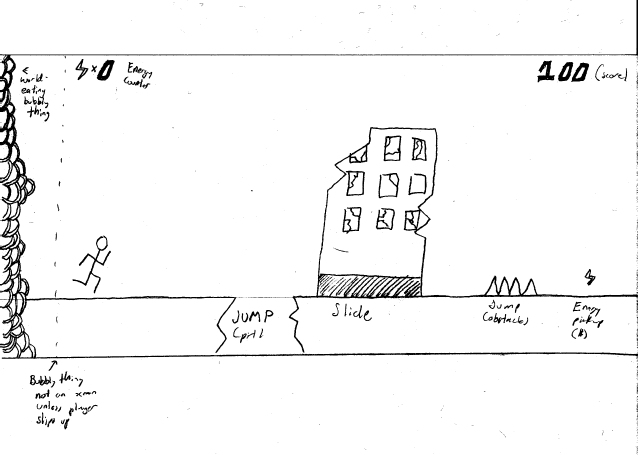 <
world-
eating
bubbly
thing
x0
Energy
Counter
100 (score)
JUMP
(pit)
Slide
Jump
(obstacle)
Energy
pickup
Bubbly thing
not on
unless player
slips up